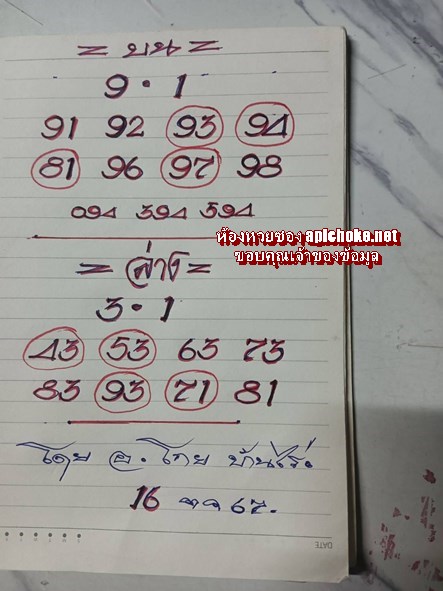 = บน =
9 · 1
91 92 93 94
81 96 97 98
094 394 594
ห้องหวยซอง apichoke.net
ขอบคุณเจ้าของข้อมูล
= ล่าง =
3 · 1
43 53 63 73
83 93 71 81
โดย อ. โกย บ้านไร่.
16 ตค 67.
DATE